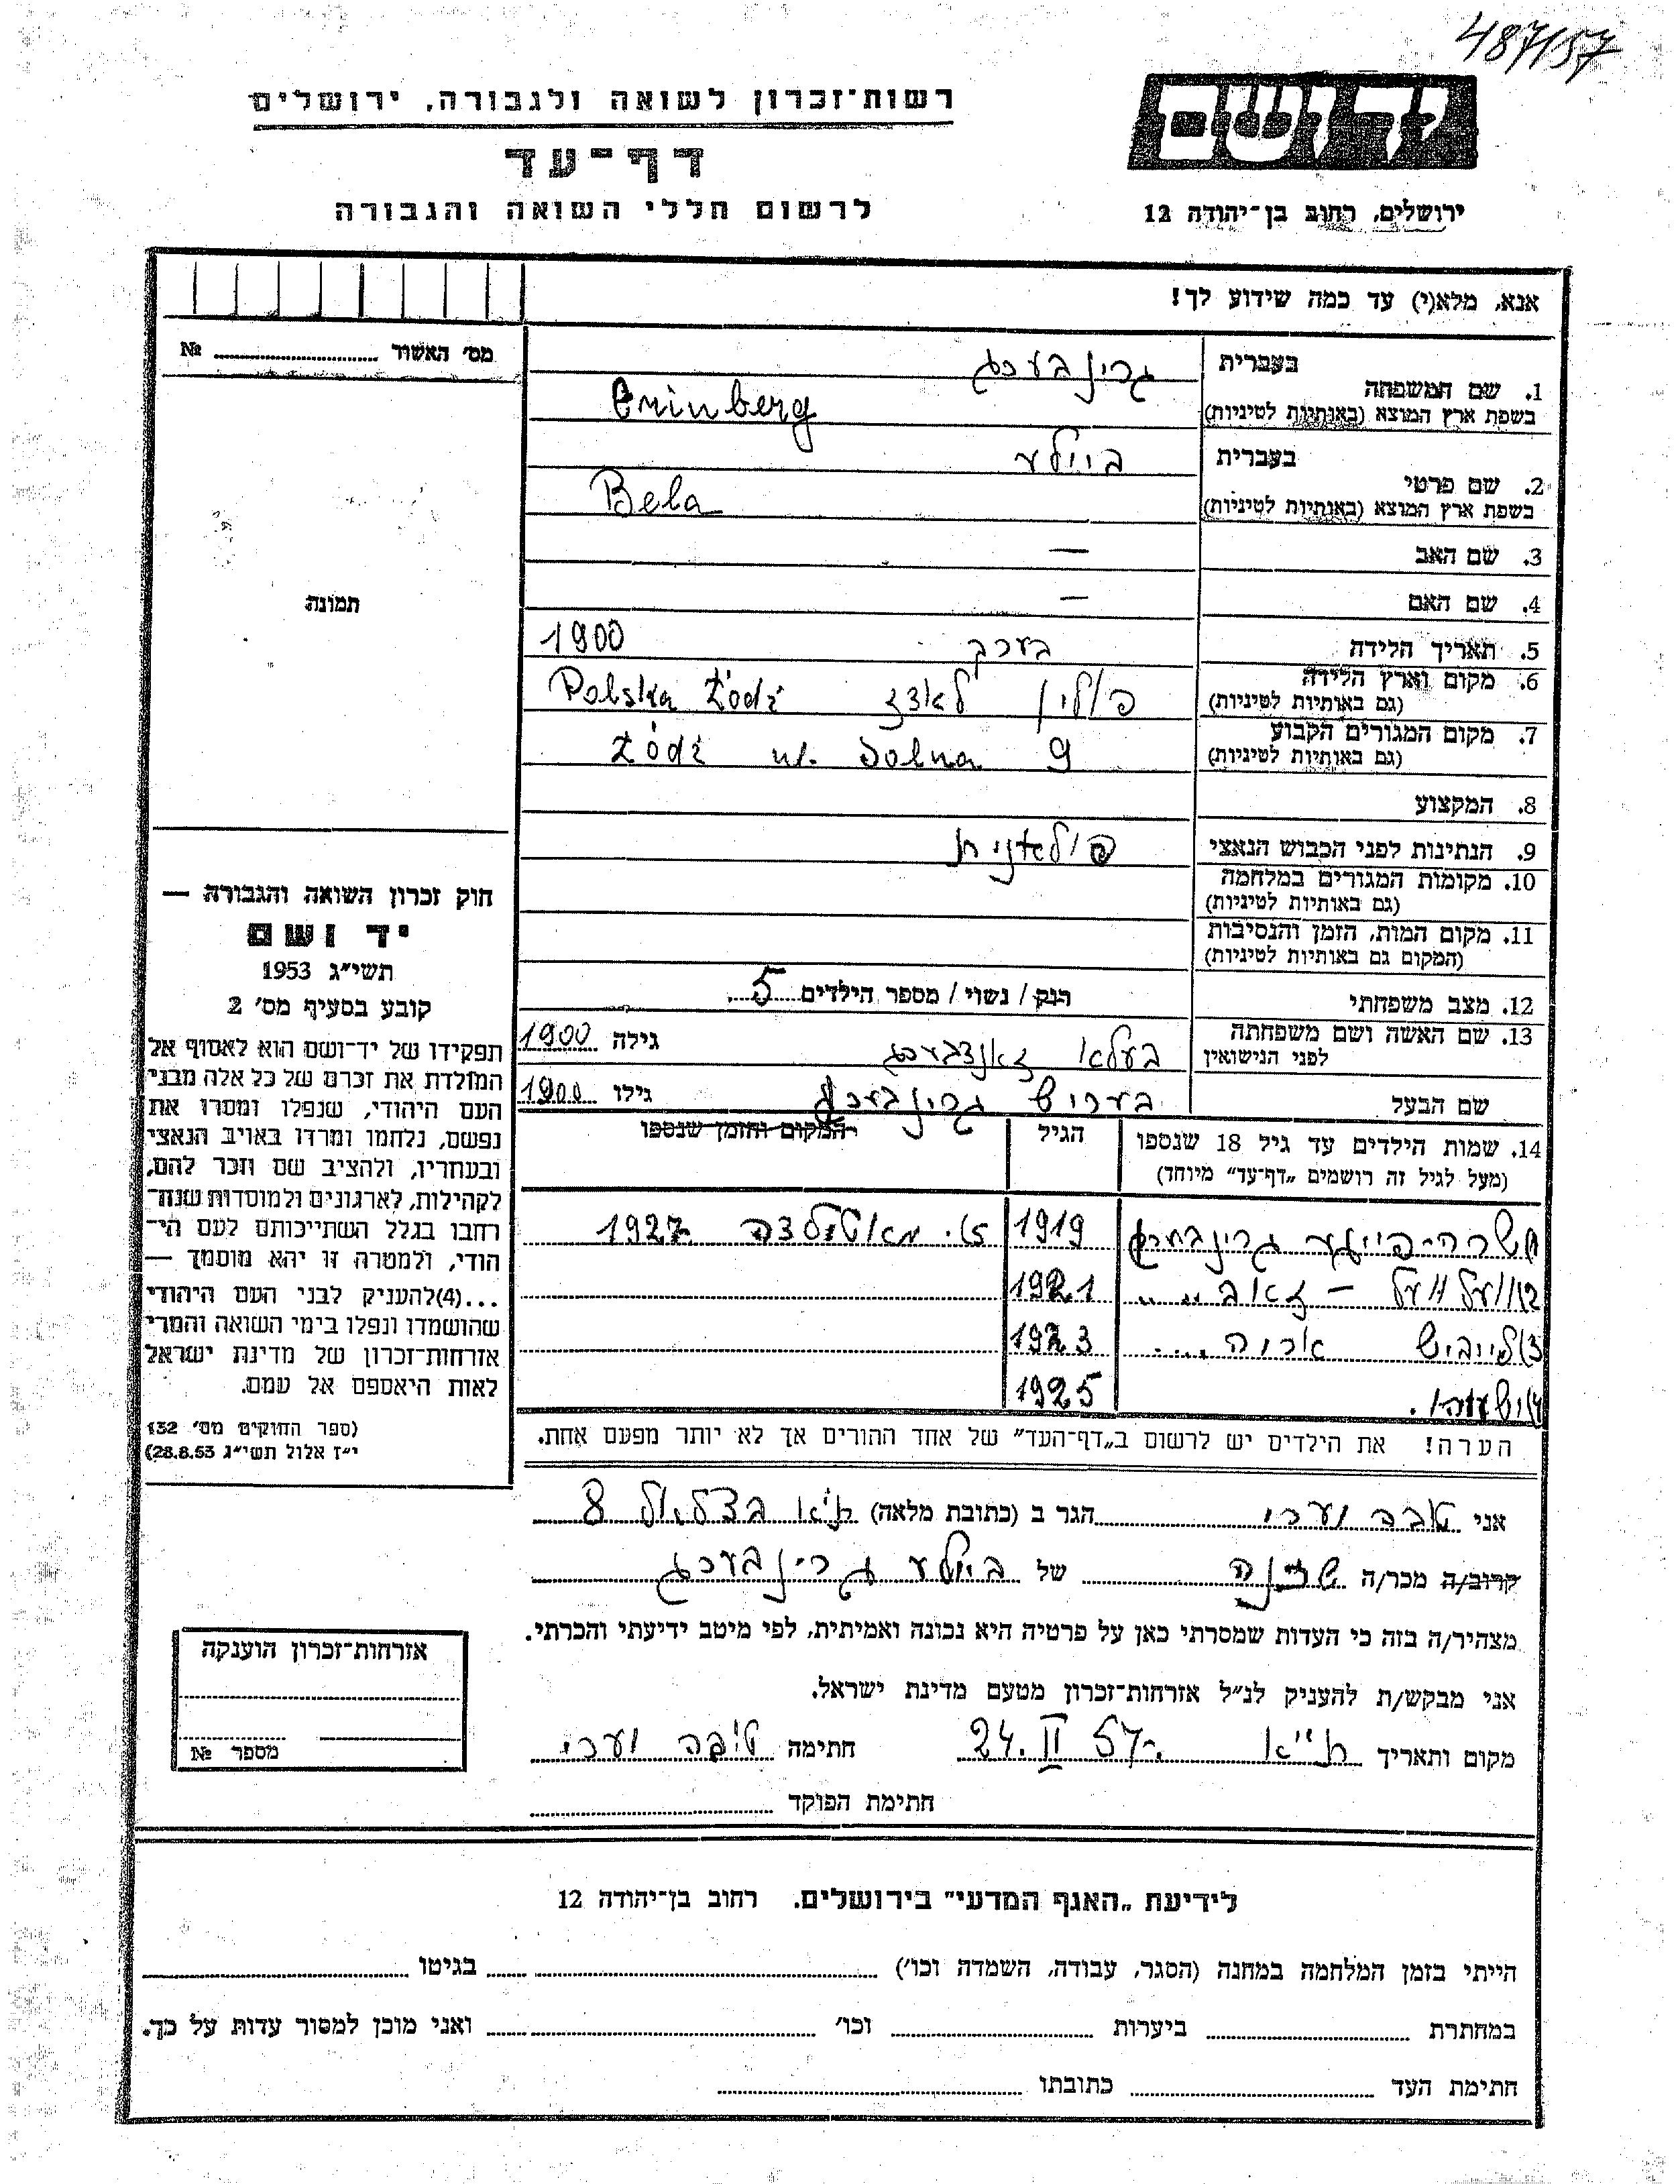 487/57
רשות־זכרון לשואה ולגבורה, ירושלים
דף־עד
לרשום חללי השואה והגבורה
יד ושם
ירושלים, רחוב בן־יהודה 12
אנא, מלא(י) עד כמה שידוע לך!
מס׳ האשור № 
1. שם המשפחה
בעברית גרינבערג
בשפת ארץ המוצא (באותיות לטיניות) Grinberg
2. שם פרטי
בעברית ביילע
בשפת ארץ המוצא (באותיות לטיניות) Bela
3. שם האב —
4. שם האם —
5. תאריך הלידה בערך 1900
6. מקום וארץ הלידה (גם באותיות לטיניות) פולין לאדז Polska Łódź
7. מקום המגורים הקבוע (גם באותיות לטיניות) Łódź ul. Dolna 9
8. המקצוע
9. הנתינות לפני הכבוש הנאצי פולאנית
10. מקומות המגורים במלחמה (גם באותיות לטיניות)
11. מקום המות, הזמן והנסיבות (המקום גם באותיות לטיניות)
12. מצב משפחתי רווק / נשוי / מספר הילדים 5
13. שם האשה ושם משפחתה לפני הנישואין בעלא זאנדבערג גילה 1900
שם הבעל בעריש גרינבערג גילו 1900
14. שמות הילדים עד גיל 18 שנספו (מעל לגיל זה רושמים „דף־עד״ מיוחד)
הגיל
המקום והזמן שנספו
גרינבערג 1919 1927
2) וועלוועל – זאב „ „ 1921
3) לייביש אריה .... 1923
1925
הערה! את הילדים יש לרשום ב„דף־העד״ של אחד ההורים אך לא יותר מפעם אחת.
תמונה
חוק זכרון השואה והגבורה —
יד ושם
תשי״ג 1953
קובע בסעיף מס׳ 2
תפקידו של יד־ושם הוא לאסוף אל
המולדת את זכרם של כל אלה מבני
העם היהודי, שנפלו ומסרו את
נפשם, נלחמו ומרדו באויב הנאצי
ובעוזריו, ולהציב שם וזכר להם,
לקהילות, לארגונים ולמוסדות שנח־
רבו בגלל השתייכותם לעם הי־
הודי, ולמטרה זו יהא מוסמך —
...(4)להעניק לבני העם היהודי
שהושמדו ונפלו בימי השואה והמרי
אזרחות־זכרון של מדינת ישראל
לאות היאספם אל עמם.
(ספר החוקים מס׳ 132
י״ז אלול תשי״ג 28.8.53)
אני טובה וערי הגר ב (כתובת מלאה) ת״א בצלאל 8
קרוב/ה מכר/ה שכנה של ביילע גרינבערג
מצהיר/ה בזה כי העדות שמסרתי כאן על פרטיה היא נכונה ואמיתית, לפי מיטב ידיעתי והכרתי.
אני מבקש/ת להעניק לנ״ל אזרחות־זכרון מטעם מדינת ישראל.
מקום ותאריך ת״א 24. II 57 חתימה טובה וערי
חתימת הפוקד
אזרחות־זכרון הוענקה
מספר №
לידיעת „האגף המדעי״ בירושלים. רחוב בן־יהודה 12
הייתי בזמן המלחמה במחנה (הסגר, עבודה, השמדה וכו׳) בגיטו
במחתרת ביערות וכו׳ ואני מוכן למסור עדות על כך.
חתימת העד כתובתו